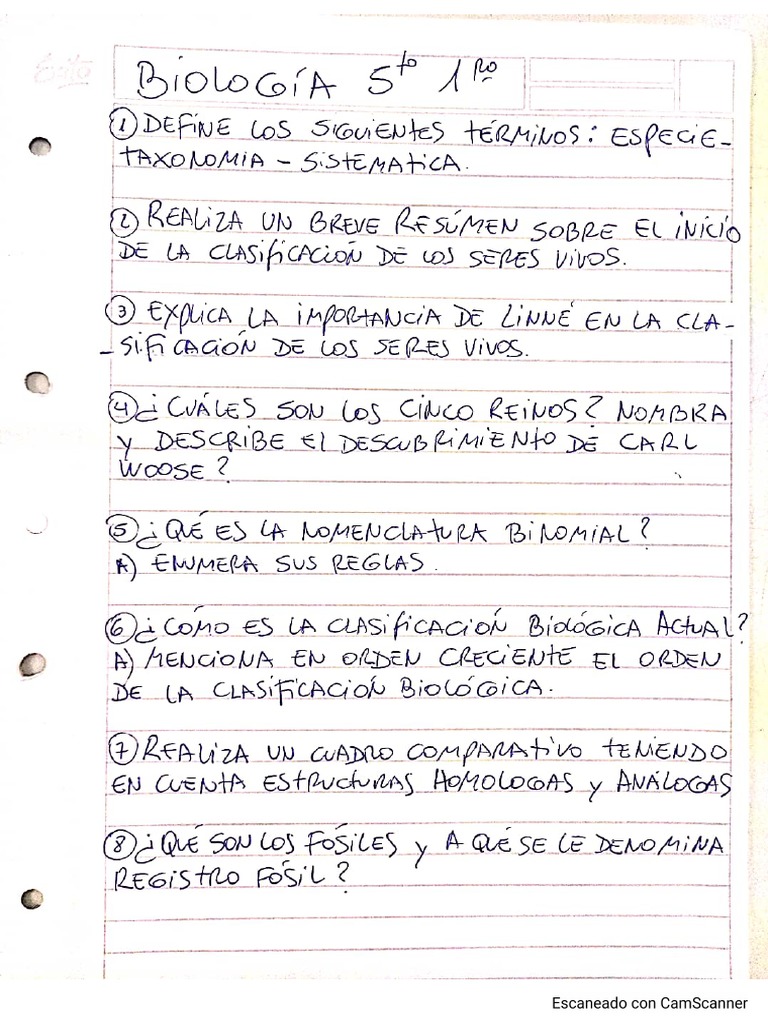 BIOLOGÍA 5to 1RO
① DEFINE LOS SIGUIENTES TÉRMINOS: ESPECIE-
TAXONOMIA - SISTEMATICA.
② REALIZA UN BREVE RESÚMEN SOBRE EL INICIO
DE LA CLASIFICACIÓN DE LOS SERES VIVOS.
③ EXPLICA LA IMPORTANCIA DE LINNÉ EN LA CLA-
-SIFICACIÓN DE LOS SERES VIVOS.
④ ¿CUÁLES SON LOS CINCO REINOS? NOMBRA
Y DESCRIBE El DESCUBRIMIENTO DE CARL
WOOSE?
⑤ ¿QUÉ ES LA NOMENCLATURA BINOMIAL?
A) ENUMERA SUS REGLAS.
⑥ ¿CÓMO ES LA CLASIFICACIÓN BIOLÓGICA ACTUAL?
A) MENCIONA EN ORDEN CRECIENTE EL ORDEN
DE LA CLASIFICACIÓN BIOLÓGICA.
⑦ REALIZA UN CUADRO COMPARATIVO TENIENDO
EN CUENTA ESTRUCTURAS HOMOLOGAS Y ANÁLOGAS
⑧ ¿QUÉ SON LOS FÓSILES Y A QUÉ SE LE DENOMINA
REGISTRO FÓSIL?
Escaneado con CamScanner